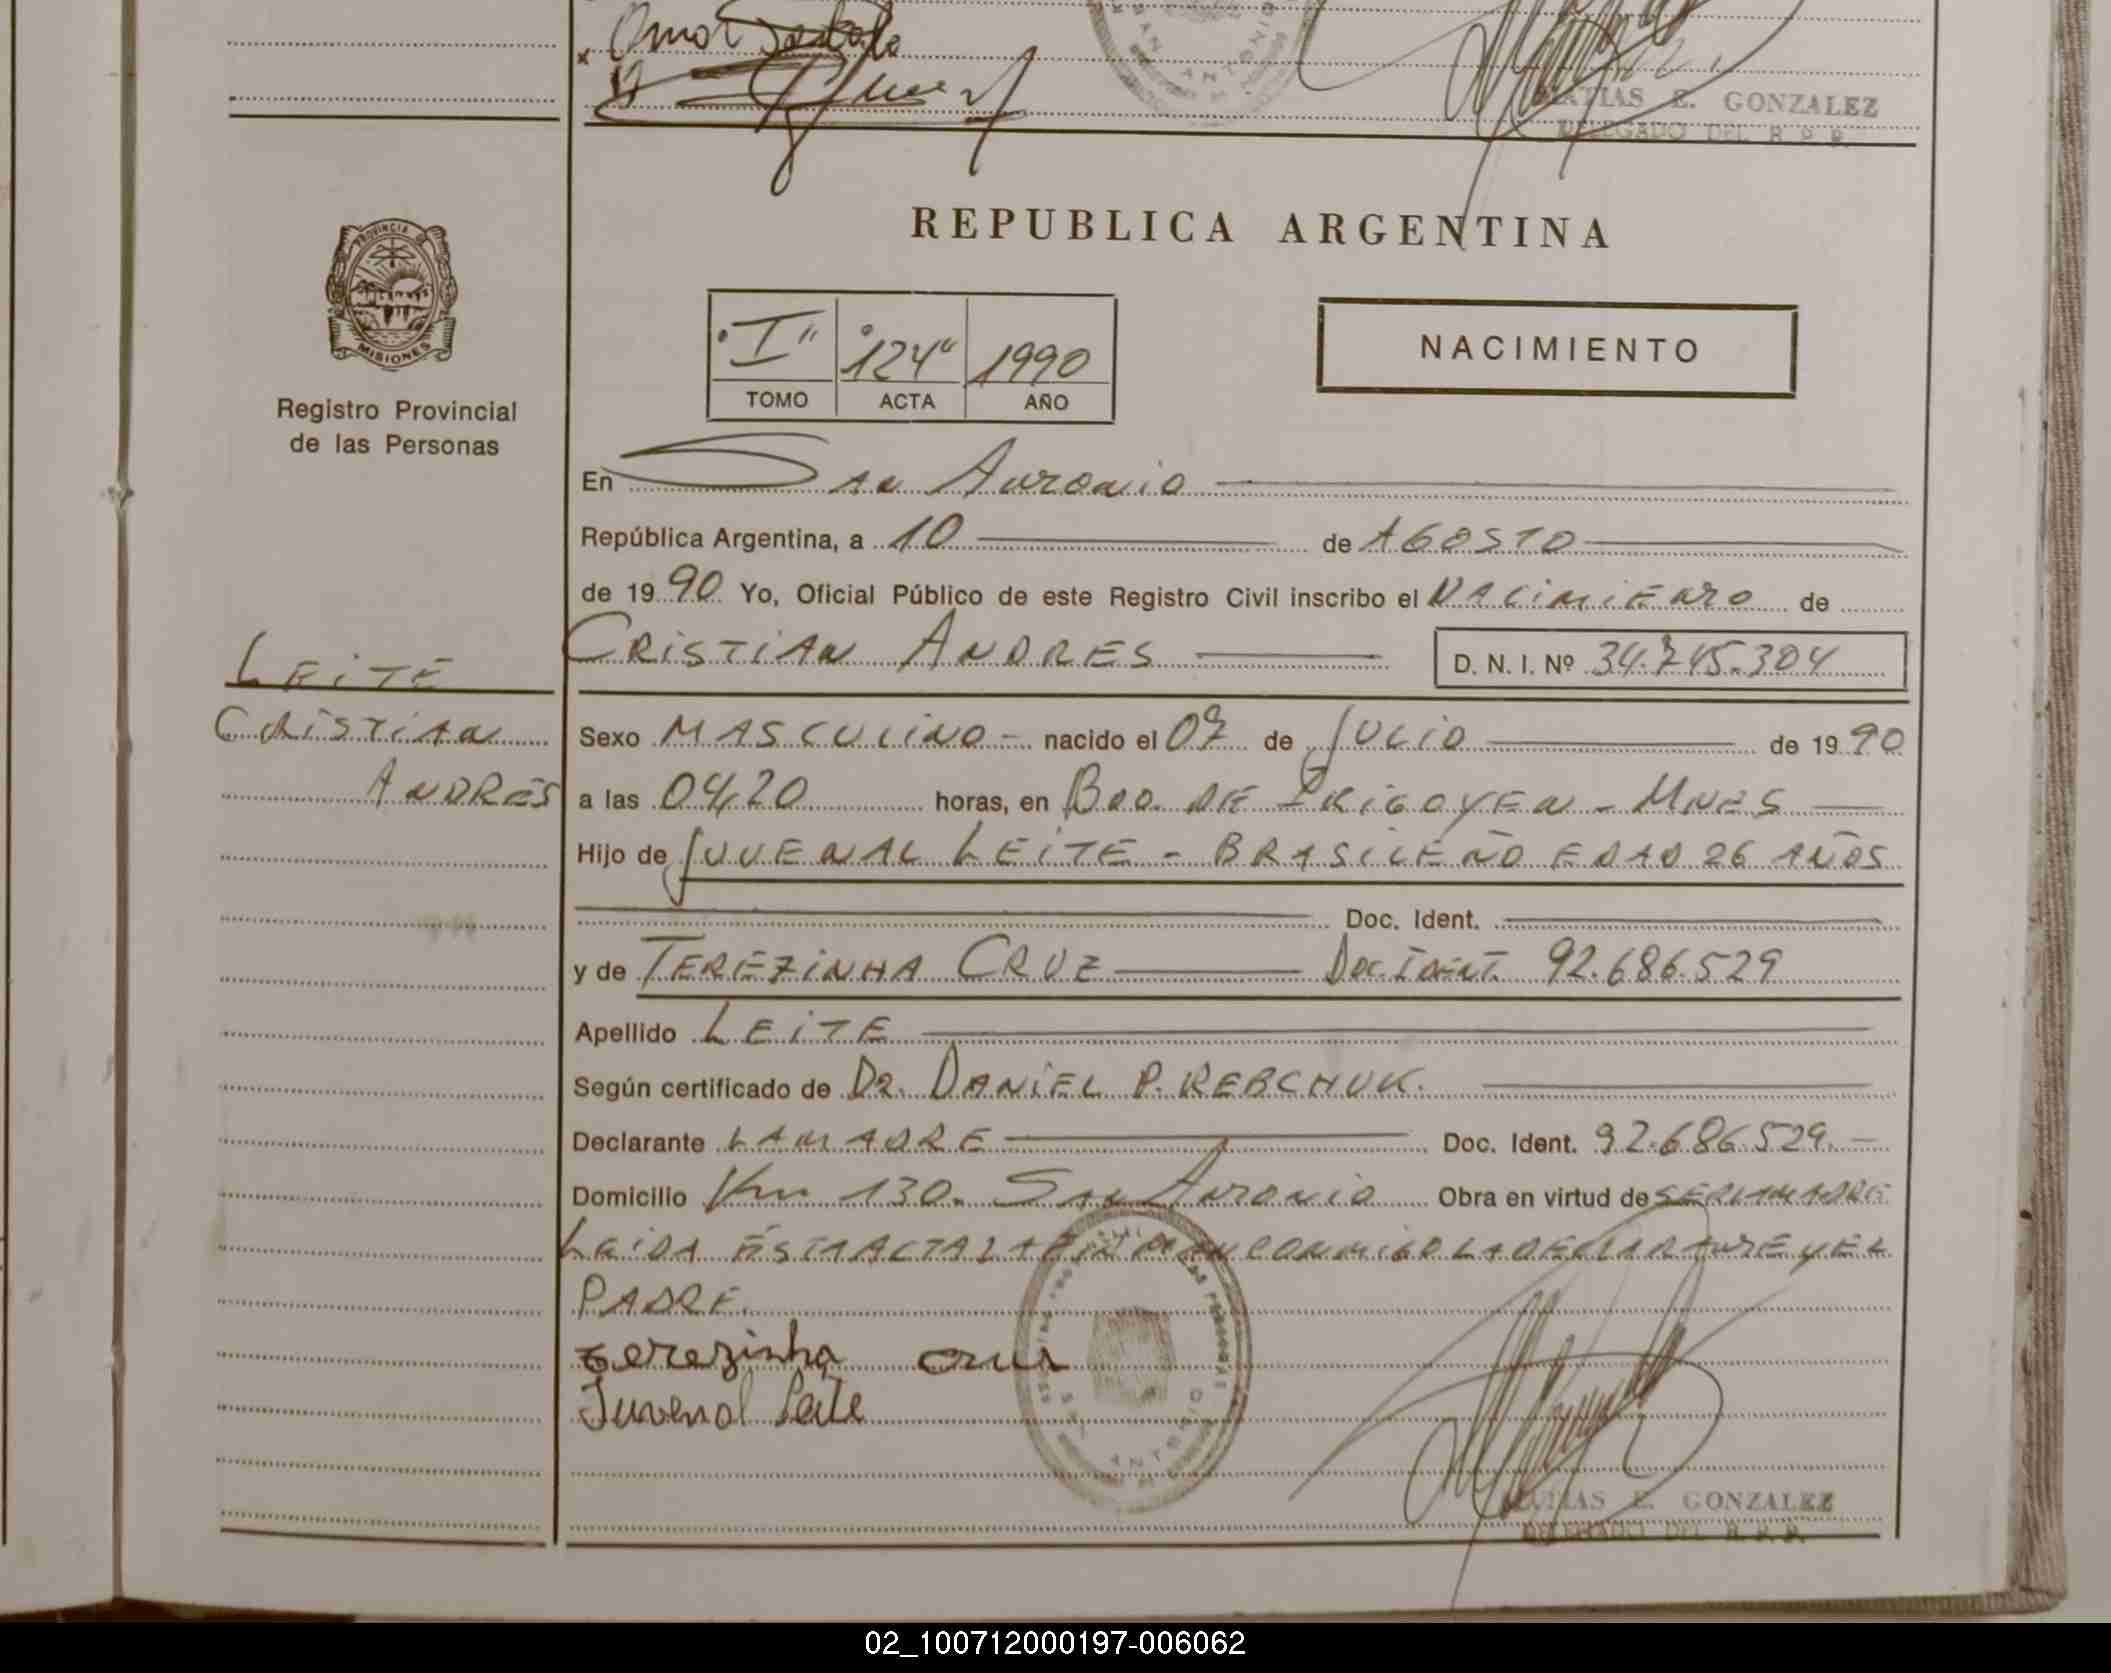 Omar
MATIAS E. GONZALEZ
DELEGADO DEL R. P. P.
PROVINCIA DE
MISIONES
Registro Provincial
de las Personas
REPUBLICA ARGENTINA
"I" "124" 1990
TOMO ACTA AÑO
NACIMIENTO
En San Antonio
República Argentina, a 10 de AGOSTO
de 1990 Yo, Oficial Público de este Registro Civil inscribo el NACIMIENTO de
CRISTIAN ANDRES D. N. I. Nº 34.745.304
LEITE
CRISTIAN
ANDRES
Sexo MASCULINO - nacido el 07 de JULIO de 1990
a las 04,20 horas, en BDO. DE IRIGOYEN - MNES
Hijo de JUVENAL LEITE - BRASILEÑO EDAD 26 AÑOS
Doc. Ident.
y de TEREZINHA CRUZ Doc. IDENT. 92.686.529
Apellido LEITE
Según certificado de DR. DANIEL P. REBCHUK.
Declarante LA MADRE Doc. Ident. 92.686.529.-
Domicilio Km 130. San Antonio Obra en virtud de SER LA MADRE
LEIDA ESTA ACTA LA FIRMAN CONMIGO LA DECLARANTE Y EL
PADRE.
terezinha cruz
Juvenal Leite
SAN ANTONIO
MATIAS E. GONZALEZ
DELEGADO DEL R. P. P.
02_100712000197-006062